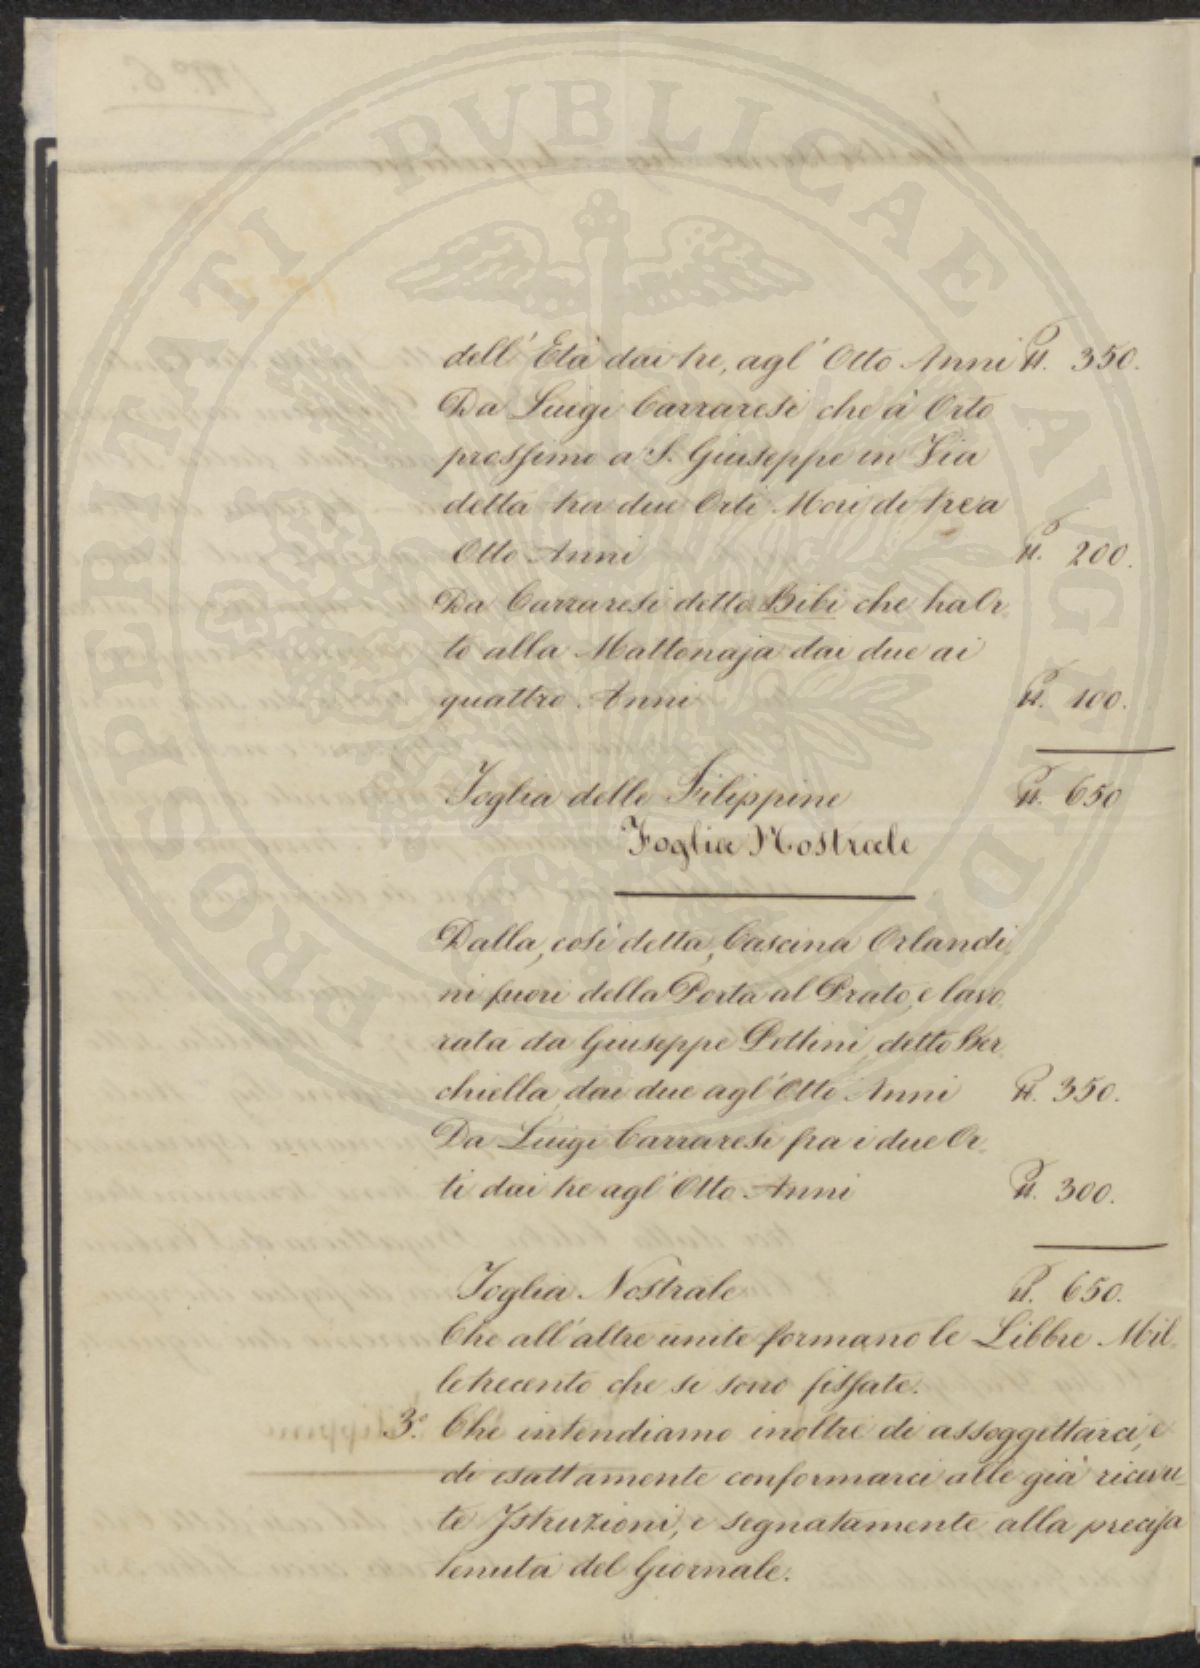 PROSPERITATI PVBLICAE AVGENDAE
dell' Età dai tre, agl' Otto Anni ℔. 350.
Da Luigi Carraresi che à Orto
prossimo a S. Giuseppe in Via
detta tra due Orti Mori di tre a
Otto Anni ℔. 200.
Da Carraresi detto Bibi che ha Or-
to alla Mattonaja dai due ai
quattro Anni ℔. 100.
Foglia delle Filippine ℔. 650
Foglia Nostrale
Dalla, così detta, Cascina Orlandi-
ni fuori della Porta al Prato, e lavo-
rata da Giuseppe Pettini detto Ber-
chiella dai due agl' Otto Anni ℔. 350.
Da Luigi Carraresi fra i due Or-
ti dai tre agl' Otto Anni ℔. 300.
Foglia Nostrale ℔. 650.
Che all' altre unite formano le Libbre Mil-
letrecento che si sono fissate.
3.° Che intendiamo inoltre di assoggettarci, e
di esattamente conformarci alle già ricevu-
te Istruzioni, e segnatamente alla precisa
tenuta del Giornale.